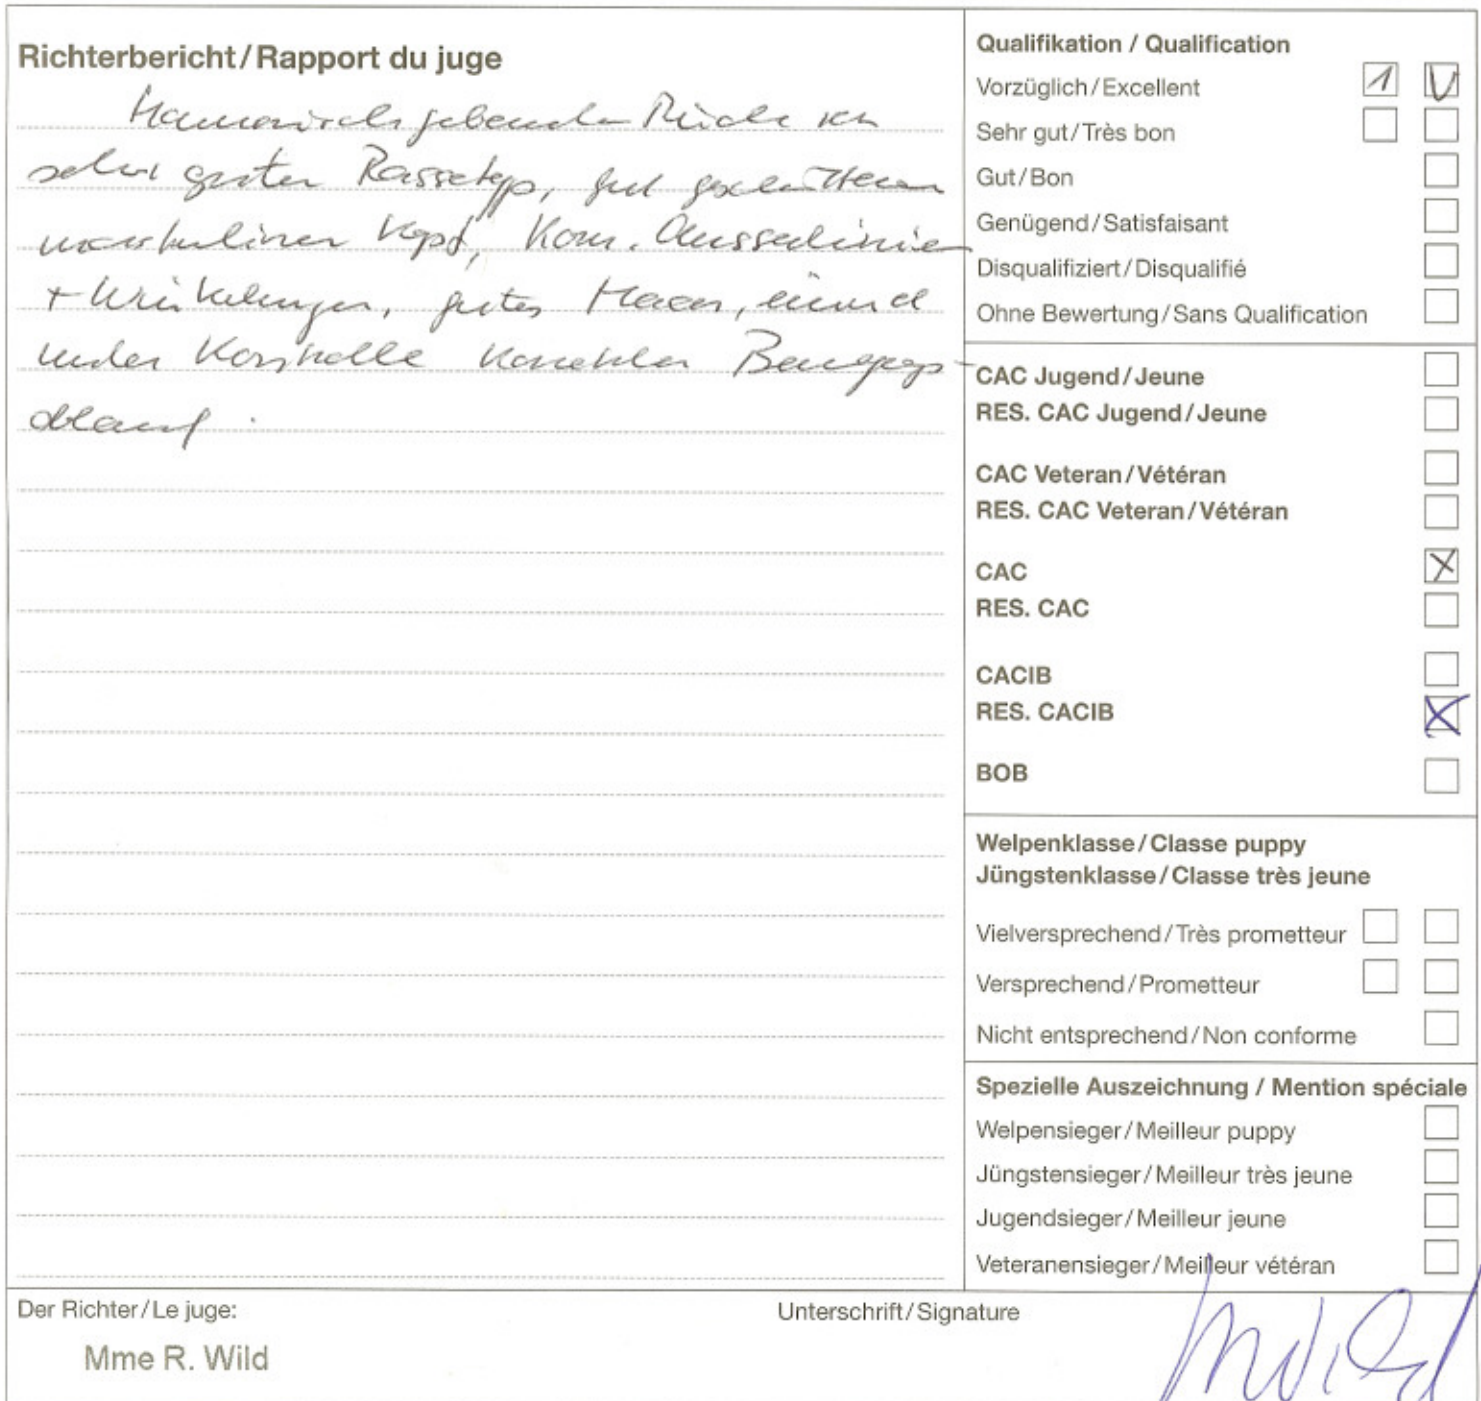 Richterbericht/Rapport du juge
Harmonisch gebauter Rüde von
sehr guter Rassetyp, gut geschnittenen
maskuliner Kopf, Korr. Aussenlinie
+ Winkelungen, gutes Haar, einmal
unter Kontrolle korrekter Bewegungs-
ablauf.
Qualifikation / Qualification
Vorzüglich/Excellent 1 V
Sehr gut/Très bon
Gut/Bon
Genügend/Satisfaisant
Disqualifiziert/Disqualifié
Ohne Bewertung/Sans Qualification
CAC Jugend/Jeune
RES. CAC Jugend/Jeune
CAC Veteran/Vétéran
RES. CAC Veteran/Vétéran
CAC X
RES. CAC
CACIB
RES. CACIB X
BOB
Welpenklasse/Classe puppy
Jüngstenklasse/Classe très jeune
Vielversprechend/Très prometteur
Versprechend/Prometteur
Nicht entsprechend/Non conforme
Spezielle Auszeichnung / Mention spéciale
Welpensieger/Meilleur puppy
Jüngstensieger/Meilleur très jeune
Jugendsieger/Meilleur jeune
Veteranensieger/Meilleur vétéran
Der Richter/Le juge:
Unterschrift/Signature
Mme R. Wild